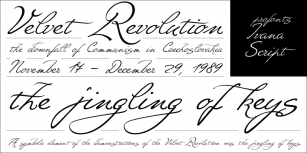 Velvet Revolution
the downfall of Communism in Czechoslovakia
November 17 – December 29, 1989
prefonts
Ivana
Script
the jingling of keys
A symbolic element of the demonstrations of the Velvet Revolution was the jingling of keys